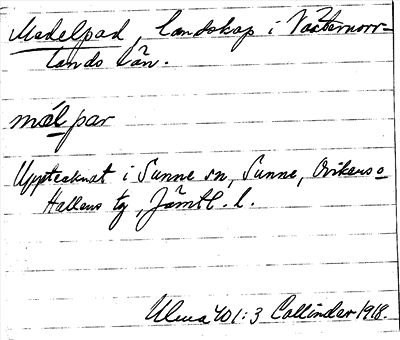 Medelpad, landskap i Västernorr-
lands län.
mælpar
Upptecknat i Sunne sn, Sunne, Ovikens o
Hallens tg, Jämtl. l.
Ulma 401:3 Collinder 1918.